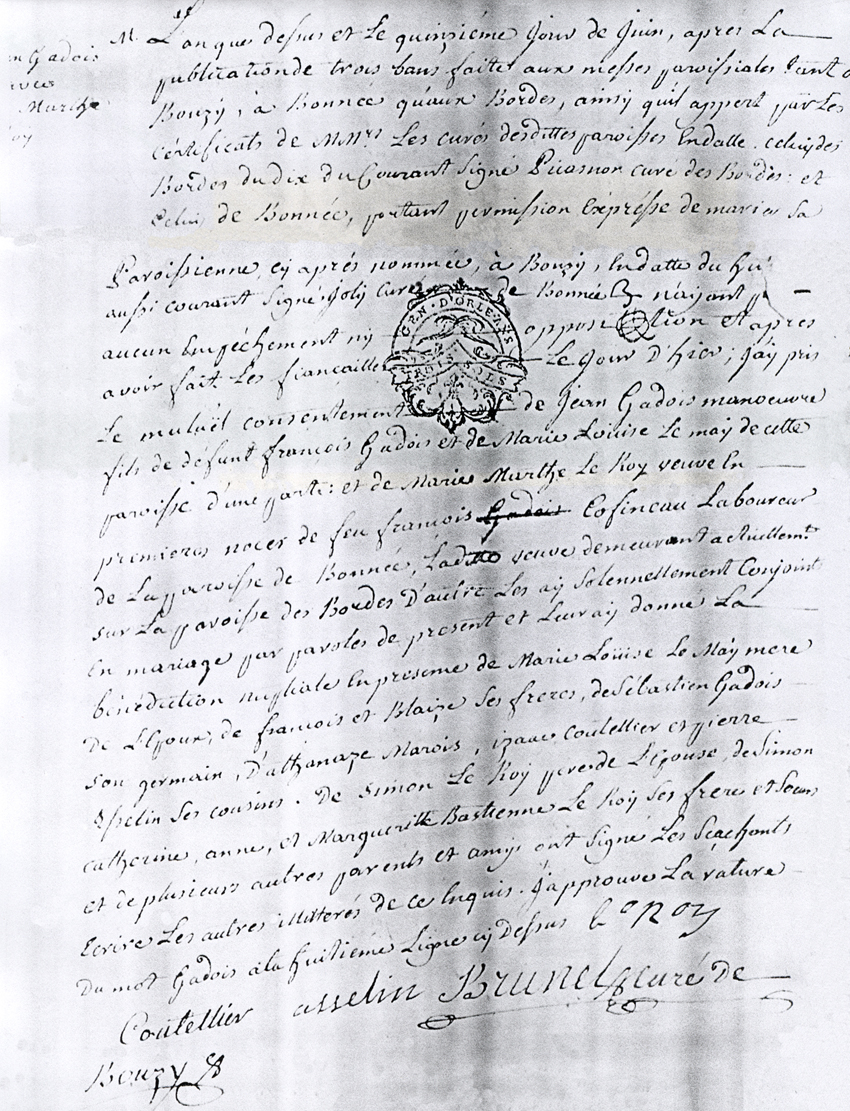 n Gadois
avec
Marthe
Roy
M. L'an que dessus et le quinziéme jour de juin, aprés La
publication de trois bans faitte aux messes paroissiales tant a
Bouzy, à Bonnee qu'aux Bordes, ainsy qu'il appert par les
certificats de MMrs Les curés desdittes paroisses En datte. celuy des
Bordes du dix du Courant signé curé des Bordes: et
Celui de Bonnée, portant permission Expresse de marier sa
Paroissienne cy aprés nommée, à Bouzy, En datte du hui
aussi courant signé joly Curé de Bonnée n'ayant
aucun Empéchement ny opposition Et apres
avoir fait Les fiancailles Le jour D'hier; j'ay pris
Le mutuël consentement de jean Gadois manoeuvre
fils de défunt françois Gadois et de Marie Loüise Le may de cette
paroisse d'une part: et de Marie Marthe Le Roy veuve En
premieres noces de feu francois Gadois Cosineau Laboureur
de La paroisse de Bonnée, Laditte veuve demeurant actuellemt
sur La paroisse des Bordes D'autre Les ay solennellement Conjoint
En mariage par paroles de present et Leur ay donné La
bénédiction nuptiale En presence de Marie Loüise Le May mere
De L'Epoux, de francois et Blaize ses freres, de Sébastien Gadois
son germain, D'athanaze Marois, izaac Coutellier et pierre
Asselin ses cousins. De Simon Le Roy pere de L'Epouse, de Simon
catherine, anne, et Margueritte Bastienne Le Roy ses frere et soeurs
et de plusieurs autres parents et amys ont signé Les Scachants
Ecrire Les autres illitterés de ce Enquis. J'approuve La rature
Du mot Gadois a la huitieme Ligne cy Dessus le Roy
Coutellier asselin Brunel curé de
Bouzy
GEN. D'ORLEANS